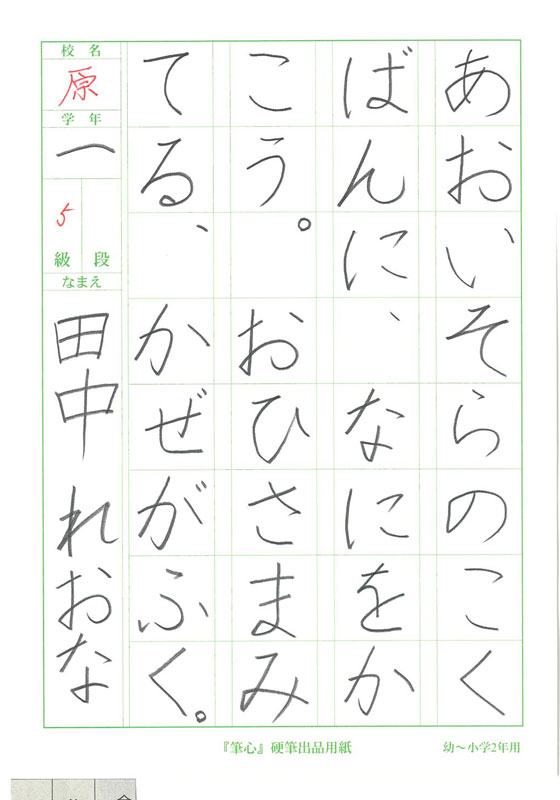 あおいそらのこく
ばんに、なにをか
こう。おひさまみ
てる、かぜがふく。
校名
原
学年
一
5
級 段
なまえ
田中れおな
『筆心』硬筆出品用紙
幼〜小学2年用